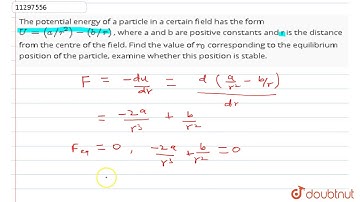 11297556
The potential energy of a particle in a certain field has the form
U = (a/r²) − (b/r), where a and b are positive constants and r is the distance
from the centre of the field. Find the value of r₀ corresponding to the equilibrium
position of the particle, examine whether this position is stable.
F = -du/dr = d (a/r² - b/r)/dr
= -2a/r³ + b/r²
Feq = 0, -2a/r³ + b/r² = 0
doubtnut